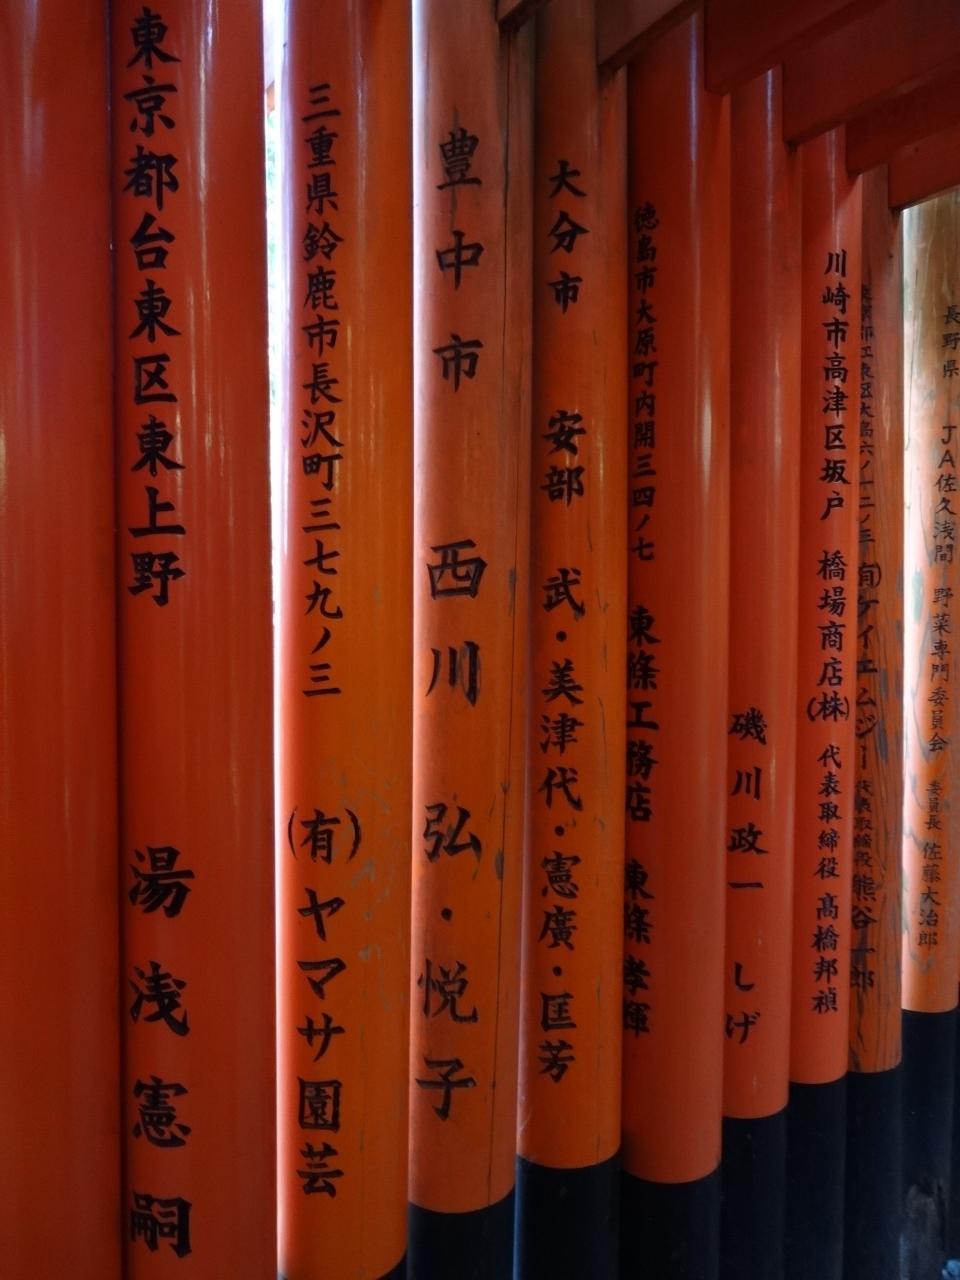 東京都台東区東上野 湯浅憲嗣
三重県鈴鹿市長沢町三七九ノ三 (有)ヤマサ園芸
豊中市 西川弘・悦子
大分市 安部 武・美津代・憲廣・匡芳
徳島市大原町内開三四ノ七 東條工務店 東條孝輝
磯川政一 しげ
川崎市高津区坂戸 橋場商店(株) 代表取締役 髙橋邦禎
東京都江東区大島六ノ一二ノ三 (有)ケイエムジー 代表取締役 熊谷一郎
長野県 JA佐久浅間 野菜専門委員会 委員長 佐藤大治郎